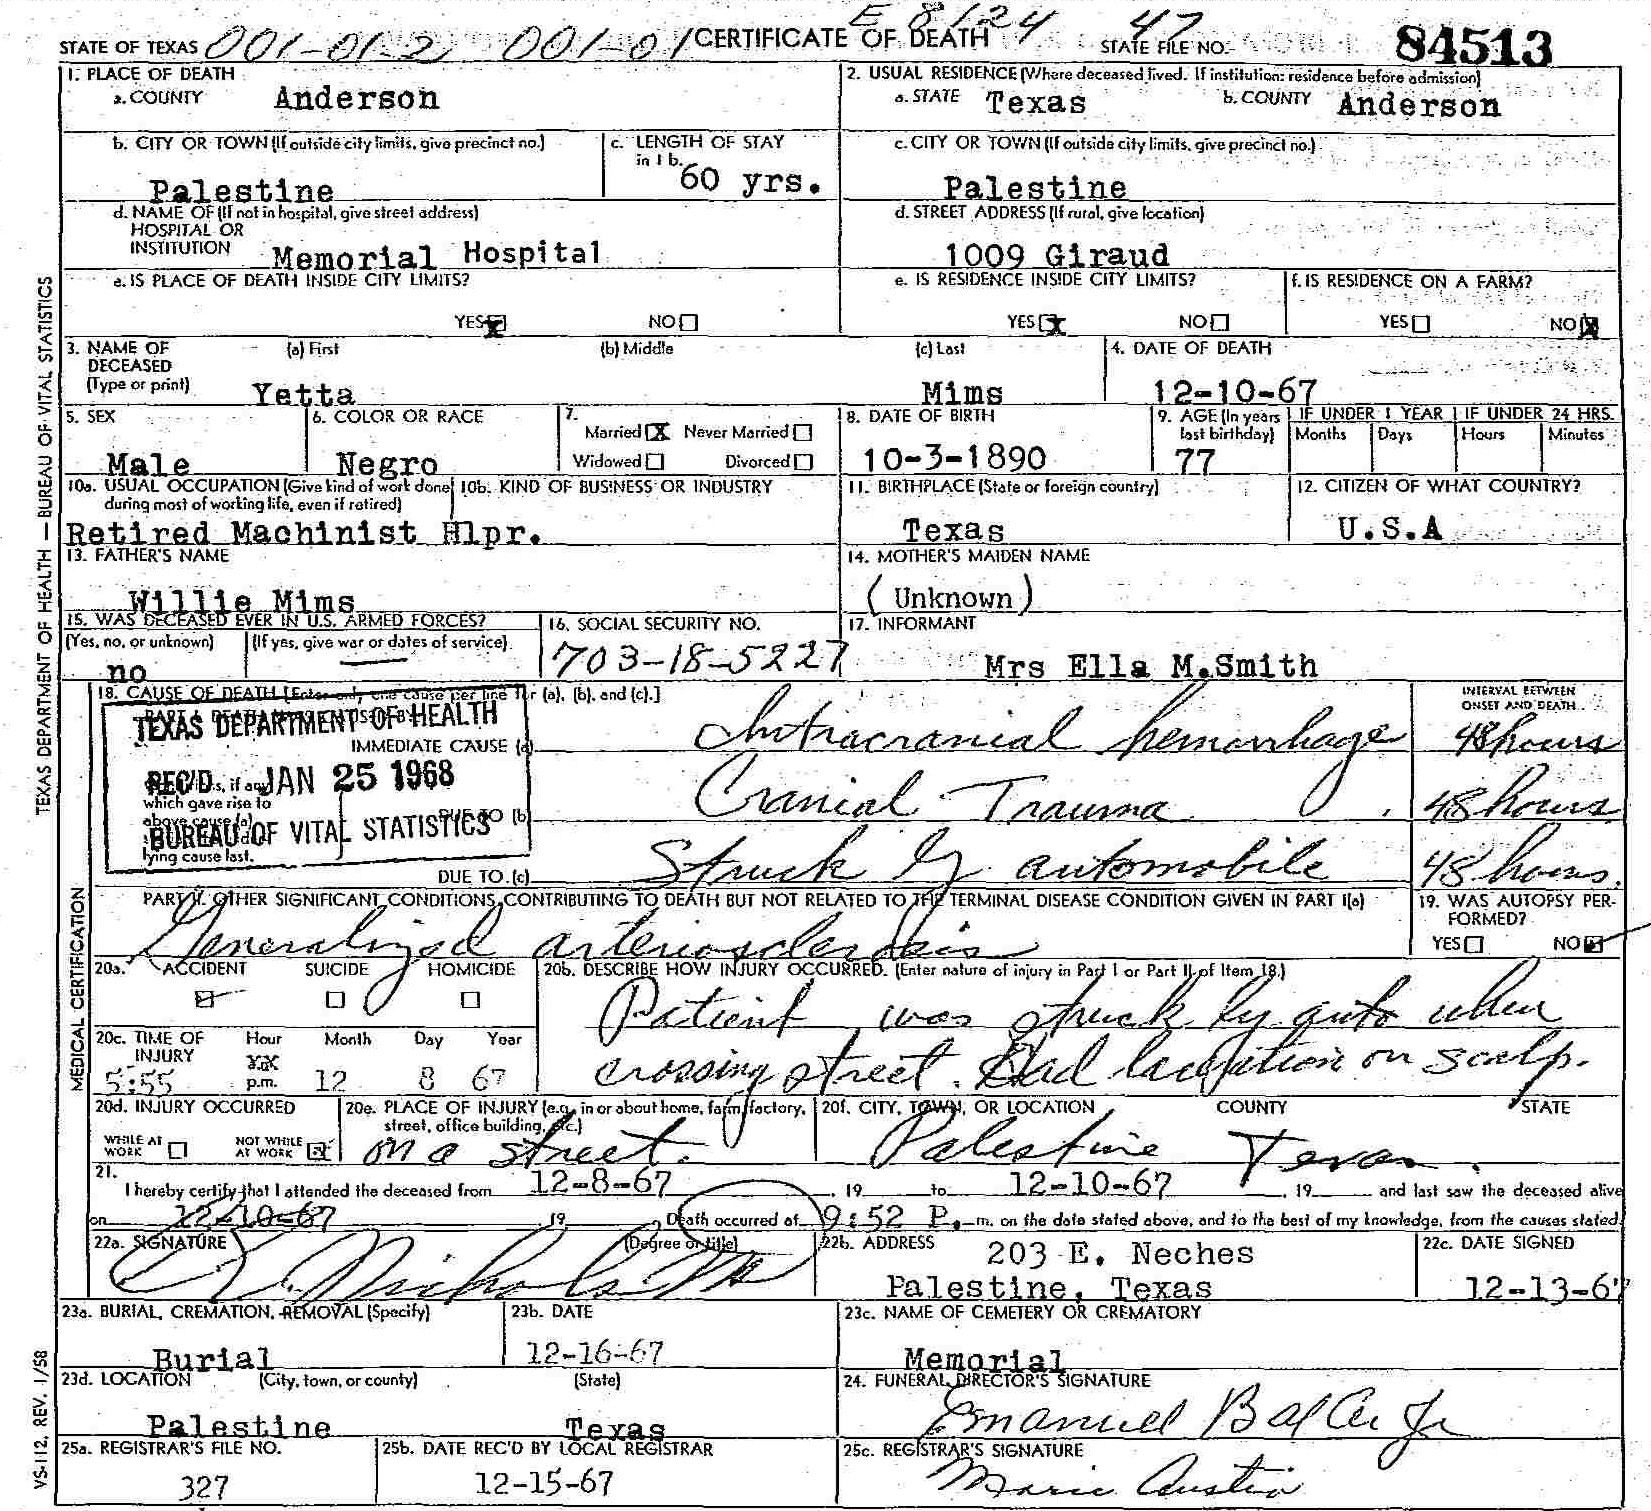 E 8124 47
STATE OF TEXAS 001-01-2 001-01 CERTIFICATE OF DEATH STATE FILE NO. 84513
1. PLACE OF DEATH
a. COUNTY Anderson
2. USUAL RESIDENCE (Where deceased lived. If institution: residence before admission)
a. STATE Texas b. COUNTY Anderson
b. CITY OR TOWN (If outside city limits, give precinct no.)
Palestine
c. LENGTH OF STAY
in 1 b.
60 yrs.
c. CITY OR TOWN (If outside city limits, give precinct no.)
Palestine
d. NAME OF (If not in hospital, give street address)
HOSPITAL OR
INSTITUTION Memorial Hospital
d. STREET ADDRESS (If rural, give location)
1009 Giraud
e. IS PLACE OF DEATH INSIDE CITY LIMITS?
YES X NO
e. IS RESIDENCE INSIDE CITY LIMITS?
YES X NO
f. IS RESIDENCE ON A FARM?
YES NO X
3. NAME OF
DECEASED
(Type or print)
(a) First (b) Middle (c) Last
Yetta Mims
4. DATE OF DEATH
12-10-67
5. SEX
Male
6. COLOR OR RACE
Negro
7.
Married X Never Married
Widowed Divorced
8. DATE OF BIRTH
10-3-1890
9. AGE (In years
last birthday)
77
IF UNDER 1 YEAR
Months Days
IF UNDER 24 HRS.
Hours Minutes
10a. USUAL OCCUPATION (Give kind of work done
during most of working life, even if retired)
Retired Machinist Hlpr.
10b. KIND OF BUSINESS OR INDUSTRY
11. BIRTHPLACE (State or foreign country)
Texas
12. CITIZEN OF WHAT COUNTRY?
U.S.A
13. FATHER'S NAME
Willie Mims
14. MOTHER'S MAIDEN NAME
(Unknown)
15. WAS DECEASED EVER IN U.S. ARMED FORCES?
(Yes, no, or unknown) (If yes, give war or dates of service)
no —
16. SOCIAL SECURITY NO.
703-18-5227
17. INFORMANT
Mrs Ella M.Smith
18. CAUSE OF DEATH [Enter only one cause per line for (a), (b), and (c).]
INTERVAL BETWEEN
ONSET AND DEATH
TEXAS DEPARTMENT OF HEALTH
REC'D JAN 25 1968
BUREAU OF VITAL STATISTICS
IMMEDIATE CAUSE (a) Intracranial hemorrhage 48 hours
which gave rise to
above cause (a)
lying cause last.
DUE TO (b) Cranial Trauma 48 hours
DUE TO (c) Struck by automobile 48 hours.
PART II. OTHER SIGNIFICANT CONDITIONS CONTRIBUTING TO DEATH BUT NOT RELATED TO THE TERMINAL DISEASE CONDITION GIVEN IN PART I(a)
Generalized arteriosclerosis
19. WAS AUTOPSY PER-
FORMED?
YES NO X
20a. ACCIDENT SUICIDE HOMICIDE
20b. DESCRIBE HOW INJURY OCCURRED. (Enter nature of injury in Part I or Part II of Item 18.)
Patient was struck by auto when
crossing street. Had laceration on scalp.
20c. TIME OF
INJURY
Hour Month Day Year
5:55 p.m. 12 8 67
20d. INJURY OCCURRED
WHILE AT
WORK
NOT WHILE
AT WORK X
20e. PLACE OF INJURY (e.g., in or about home, farm, factory,
street, office building, etc.)
on a street.
20f. CITY, TOWN, OR LOCATION COUNTY STATE
Palestine Texas.
21.
I hereby certify that I attended the deceased from 12-8-67, 19 to 12-10-67, 19 and last saw the deceased alive
on 12-10-67 19 Death occurred at 9:52 P. m. on the date stated above, and to the best of my knowledge, from the causes stated.
22a. SIGNATURE (Degree or title)
Nichols
22b. ADDRESS 203 E. Neches
Palestine, Texas
22c. DATE SIGNED
12-13-67
23a. BURIAL, CREMATION, REMOVAL (Specify)
Burial
23b. DATE
12-16-67
23c. NAME OF CEMETERY OR CREMATORY
Memorial
23d. LOCATION (City, town, or county) (State)
Palestine Texas
24. FUNERAL DIRECTOR'S SIGNATURE
Emanuel Jr
25a. REGISTRAR'S FILE NO.
327
25b. DATE REC'D BY LOCAL REGISTRAR
12-15-67
25c. REGISTRAR'S SIGNATURE
Marie Austin
TEXAS DEPARTMENT OF HEALTH — BUREAU OF VITAL STATISTICS
MEDICAL CERTIFICATION
VS-112, REV. 1/58